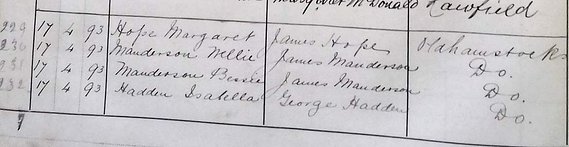 McDonald Lawfield
229 17 4 93 Hope Margaret James Hope Oldhamstocks
230 17 4 93 Manderson Nellie James Manderson Do.
231 17 4 93 Manderson Bessie James Manderson Do.
232 17 4 93 Hadden Isabella George Hadden Do.